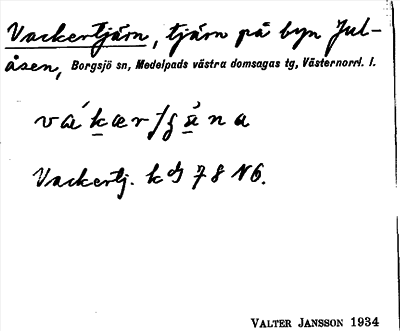 Vackertjärn, tjärn på byn Jul-
åsen, Borgsjö sn, Medelpads västra domsagas tg, Västernorrl. l.
Vackertj. 78 N6.
VALTER JANSSON 1934